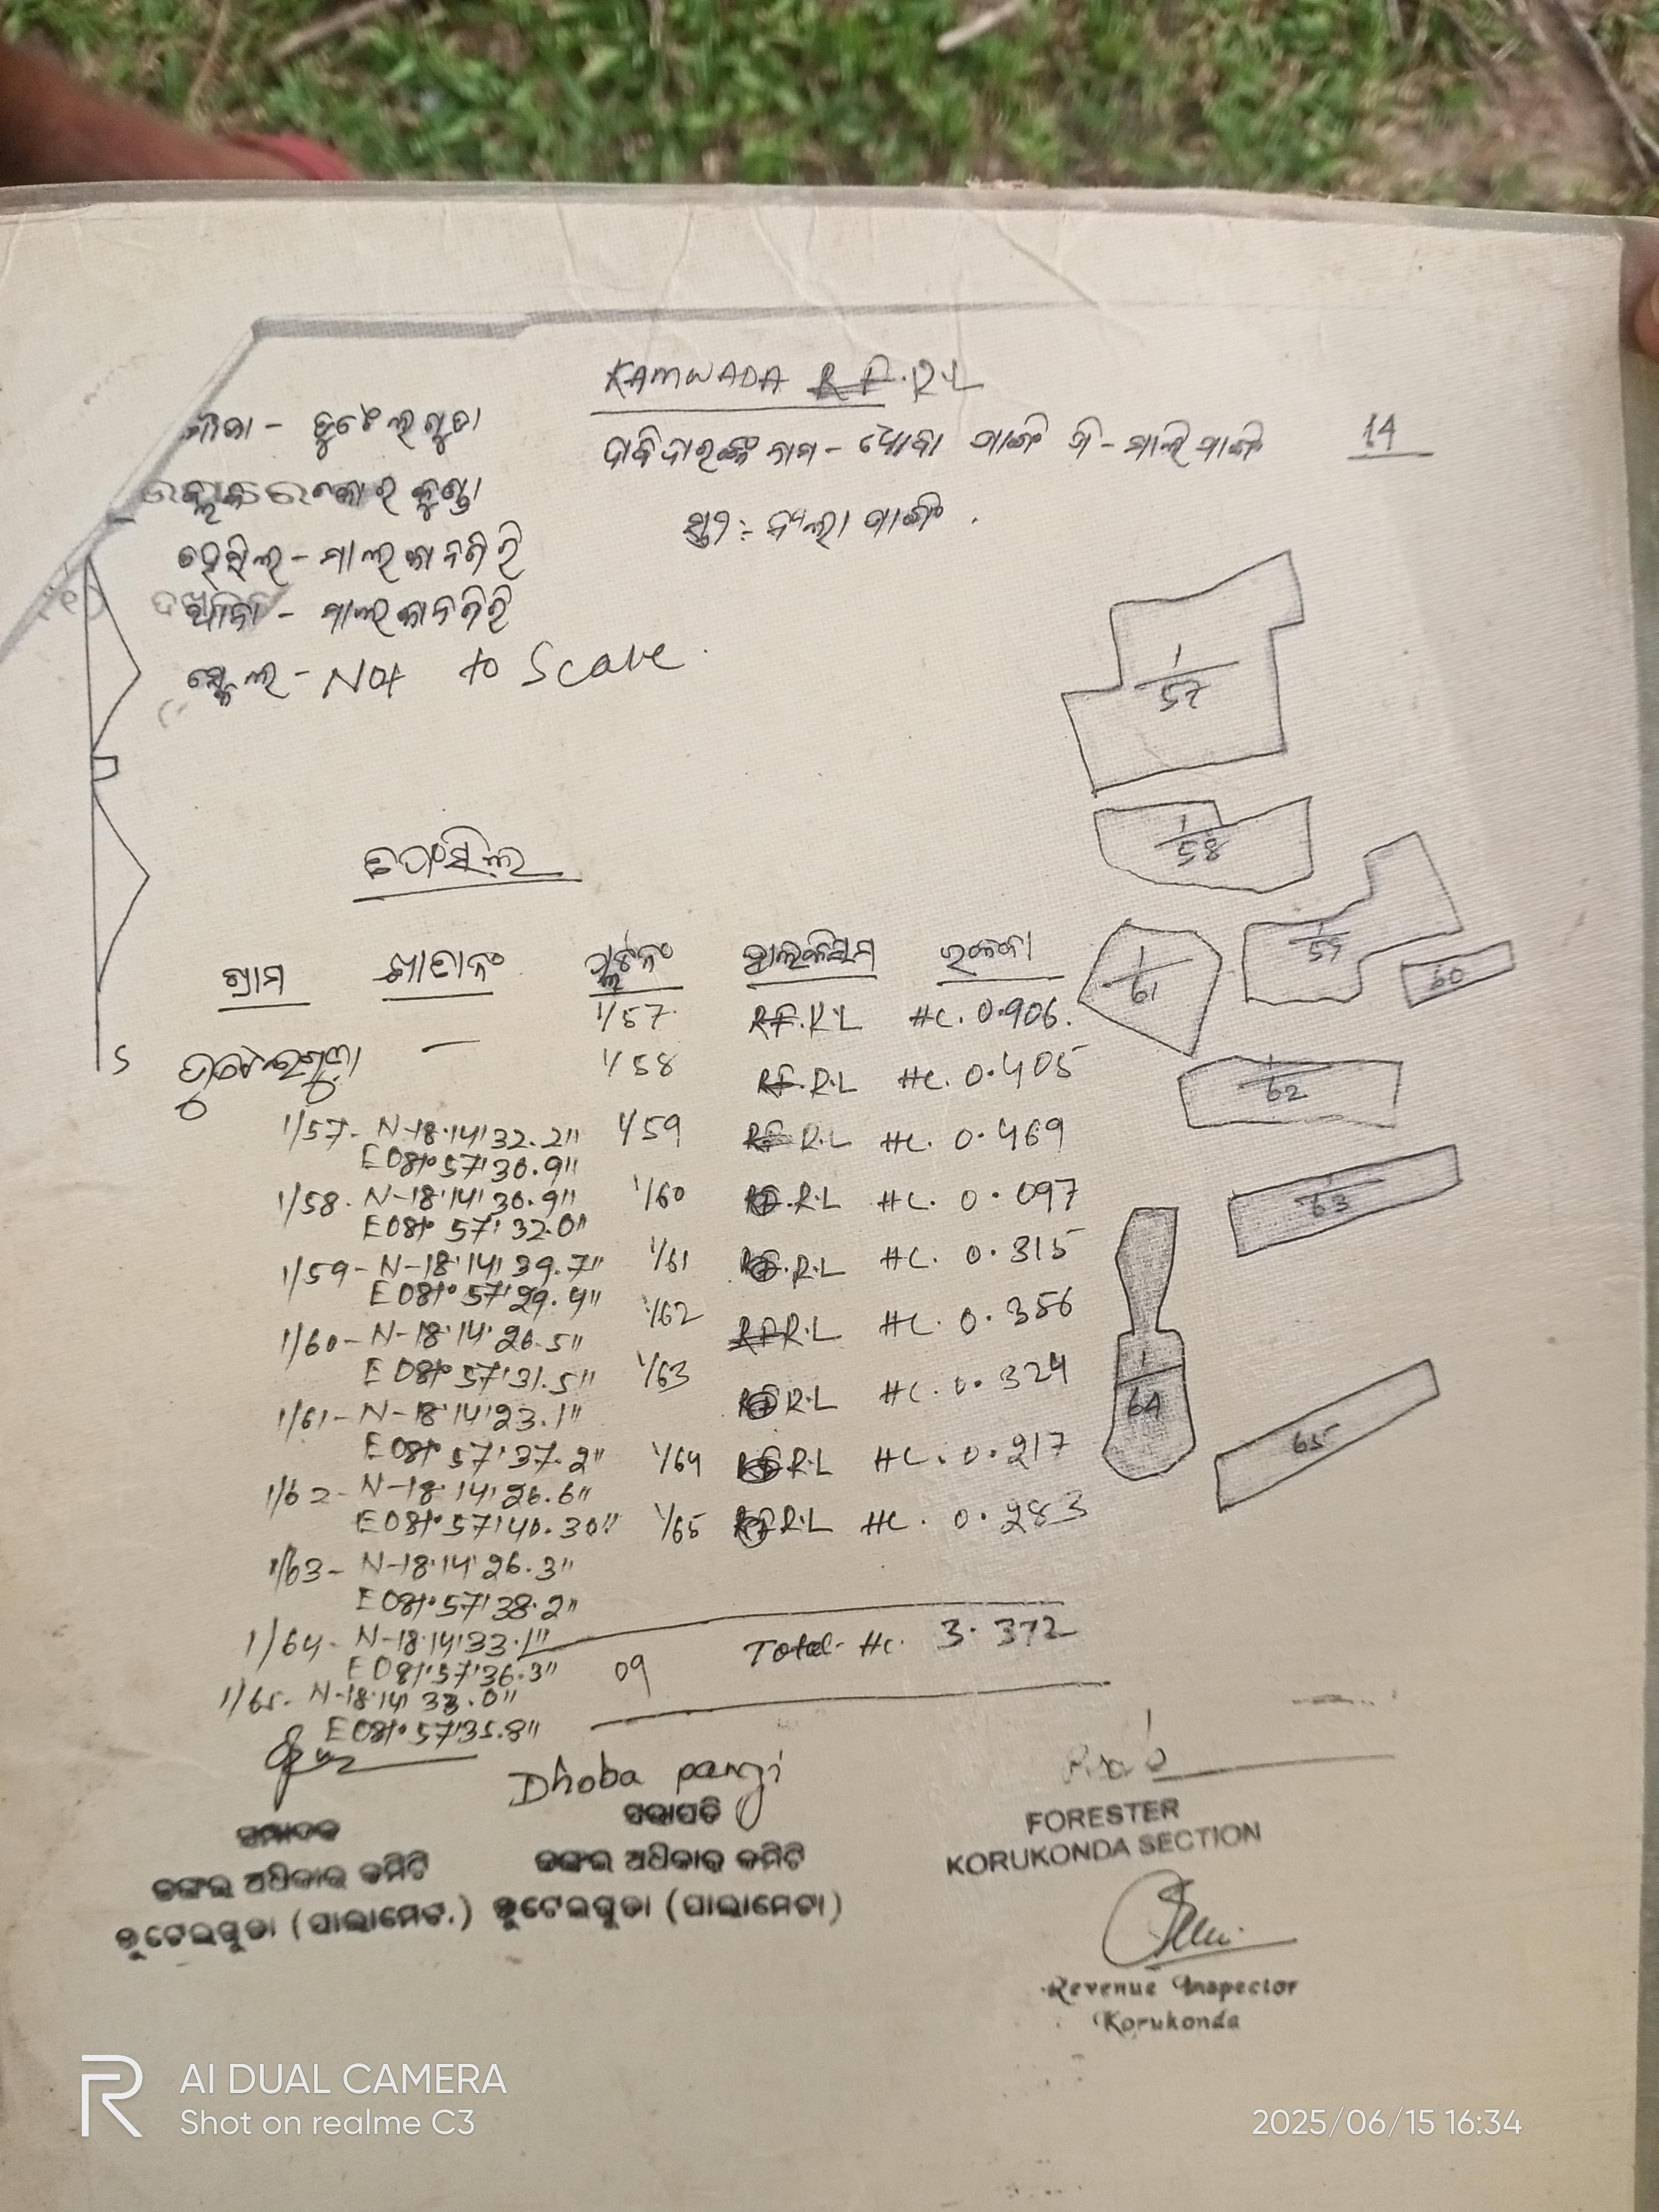 KAMWADA R.F.R.L
14
ଦାବିଦାରଙ୍କ ନାମ - ଧୋବା ପାଙ୍ଗି ପି - ମାଲି ପାଙ୍ଗି
ମାଲକାନଗିରି
ମାଲକାନଗିରି
ସ୍କେଲ - Not to Scale
1/57
1/58
59
60
1/61
1/62
1/63
1/64
65
S
ତପସିଲ
ଗ୍ରାମ ଖାତାନଂ ପ୍ଲଟନଂ କିସମ ରକବା
— 1/57 RF.R.L HC. 0.906.
1/58 RF.R.L HC. 0.405
1/59 RF R.L HC. 0.469
1/60 RF.R.L HC. 0.097
1/61 RF.R.L HC. 0.315
1/62 RFR.L HC. 0.356
1/63 RFR.L HC. 0.324
1/64 RFR.L HC. 0.217
1/65 RFR.L HC. 0.283
1/57- N-18°14'32.2"
E081°57'30.9"
1/58- N-18°14'30.9"
E081°57'32.0"
1/59- N-18°14'39.7"
E081°57'29.4"
1/60- N-18°14'26.5"
E081°57'31.5"
1/61- N-18°14'23.1"
E081°57'37.2"
1/62- N-18°14'26.6"
E081°57'40.30"
1/63- N-18°14'26.3"
E081°57'38.2"
1/64- N-18°14'33.1"
E081°57'36.3"
1/65- N-18°14'33.0"
E081°57'35.8"
09 Total- Hc. 3.372
Dhoba pangi
ସମ୍ପାଦକ
ଜଙ୍ଗଲ ଅଧିକାର କମିଟି
(ପାଲାମେଟା)
ସଭାପତି
ଜଙ୍ଗଲ ଅଧିକାର କମିଟି
(ପାଲାମେଟା)
FORESTER
KORUKONDA SECTION
Revenue Inspector
Korukonda
AI DUAL CAMERA
Shot on realme C3
2025/06/15 16:34